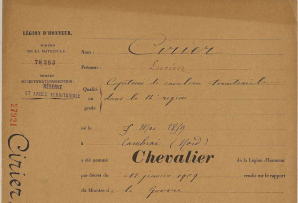 LÉGION D'HONNEUR.
NUMÉRO
DE LA MATRICULE
78253
Nom : Cirier
Prénoms : Lucien
RÉSERVE
ET ARMÉE TERRITORIALE
Qualité
ou
grade
Capitaine de cavalerie territoriale
dans la 12e région
né le 5 Mai
à Cambrai (Nord)
a été nommé Chevalier de la Légion d'Honneur
par décret du janvier 1909 rendu sur le rapport
du Ministre de la Guerre
Cirier